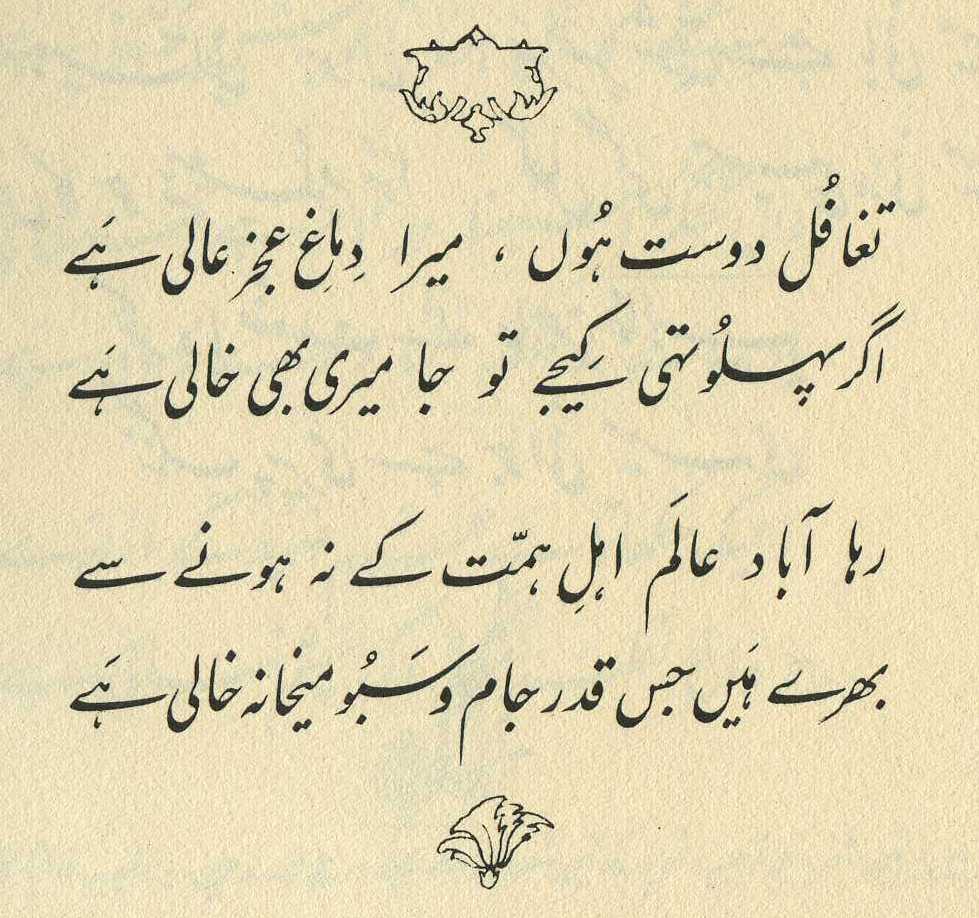 تغافُل دوست ہُوں ، میرا دِماغِ عجز عالی ہَے
اگر پہلُو تہی کیجے تو جا میری بھی خالی ہَے
رہا آباد عالَم اہلِ ہمّت کے نہ ہونے سے
بھرے ہَیں جس قدر جام و سَبُو میخانہ خالی ہَے